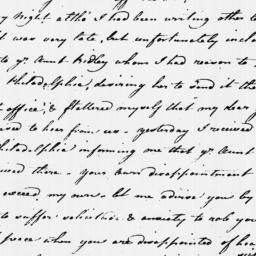 night altho I had been writing other
was very late, but unfortunately incl
to yr. Aunt Ridley whom I had reason to
Philadelphia, desiring her to send it th
office, & flattered myself that my dear
to hear from us - yesterday I received
Philadelphia informing me that yr Aunt
there - your own disappointment
exceed my own - let me advise you by
to suffer solicitude & anxiety to rob you
peace when you are disappointed of hea